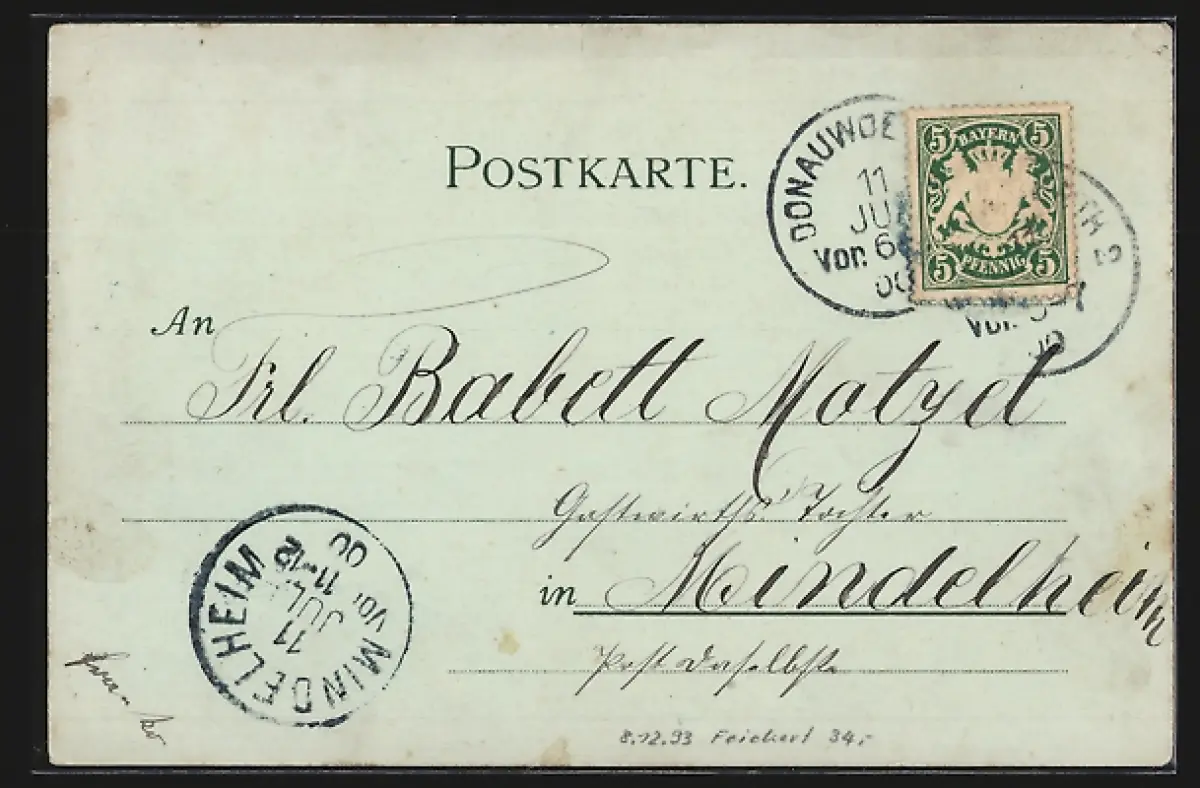 POSTKARTE.
DONAUWOE
11
JU
Vor. 6
00
5 BAYERN 5
5 PFENNIG 5
TH 2
Vor.
00
An
Frl. Babett Motzet
Gastwirths Tochter
in Mindelheim
Post daselbst
MINDELHEIM
11
JUL
Vor 11-12
00
franko
8.12.93 Feichert 34,-